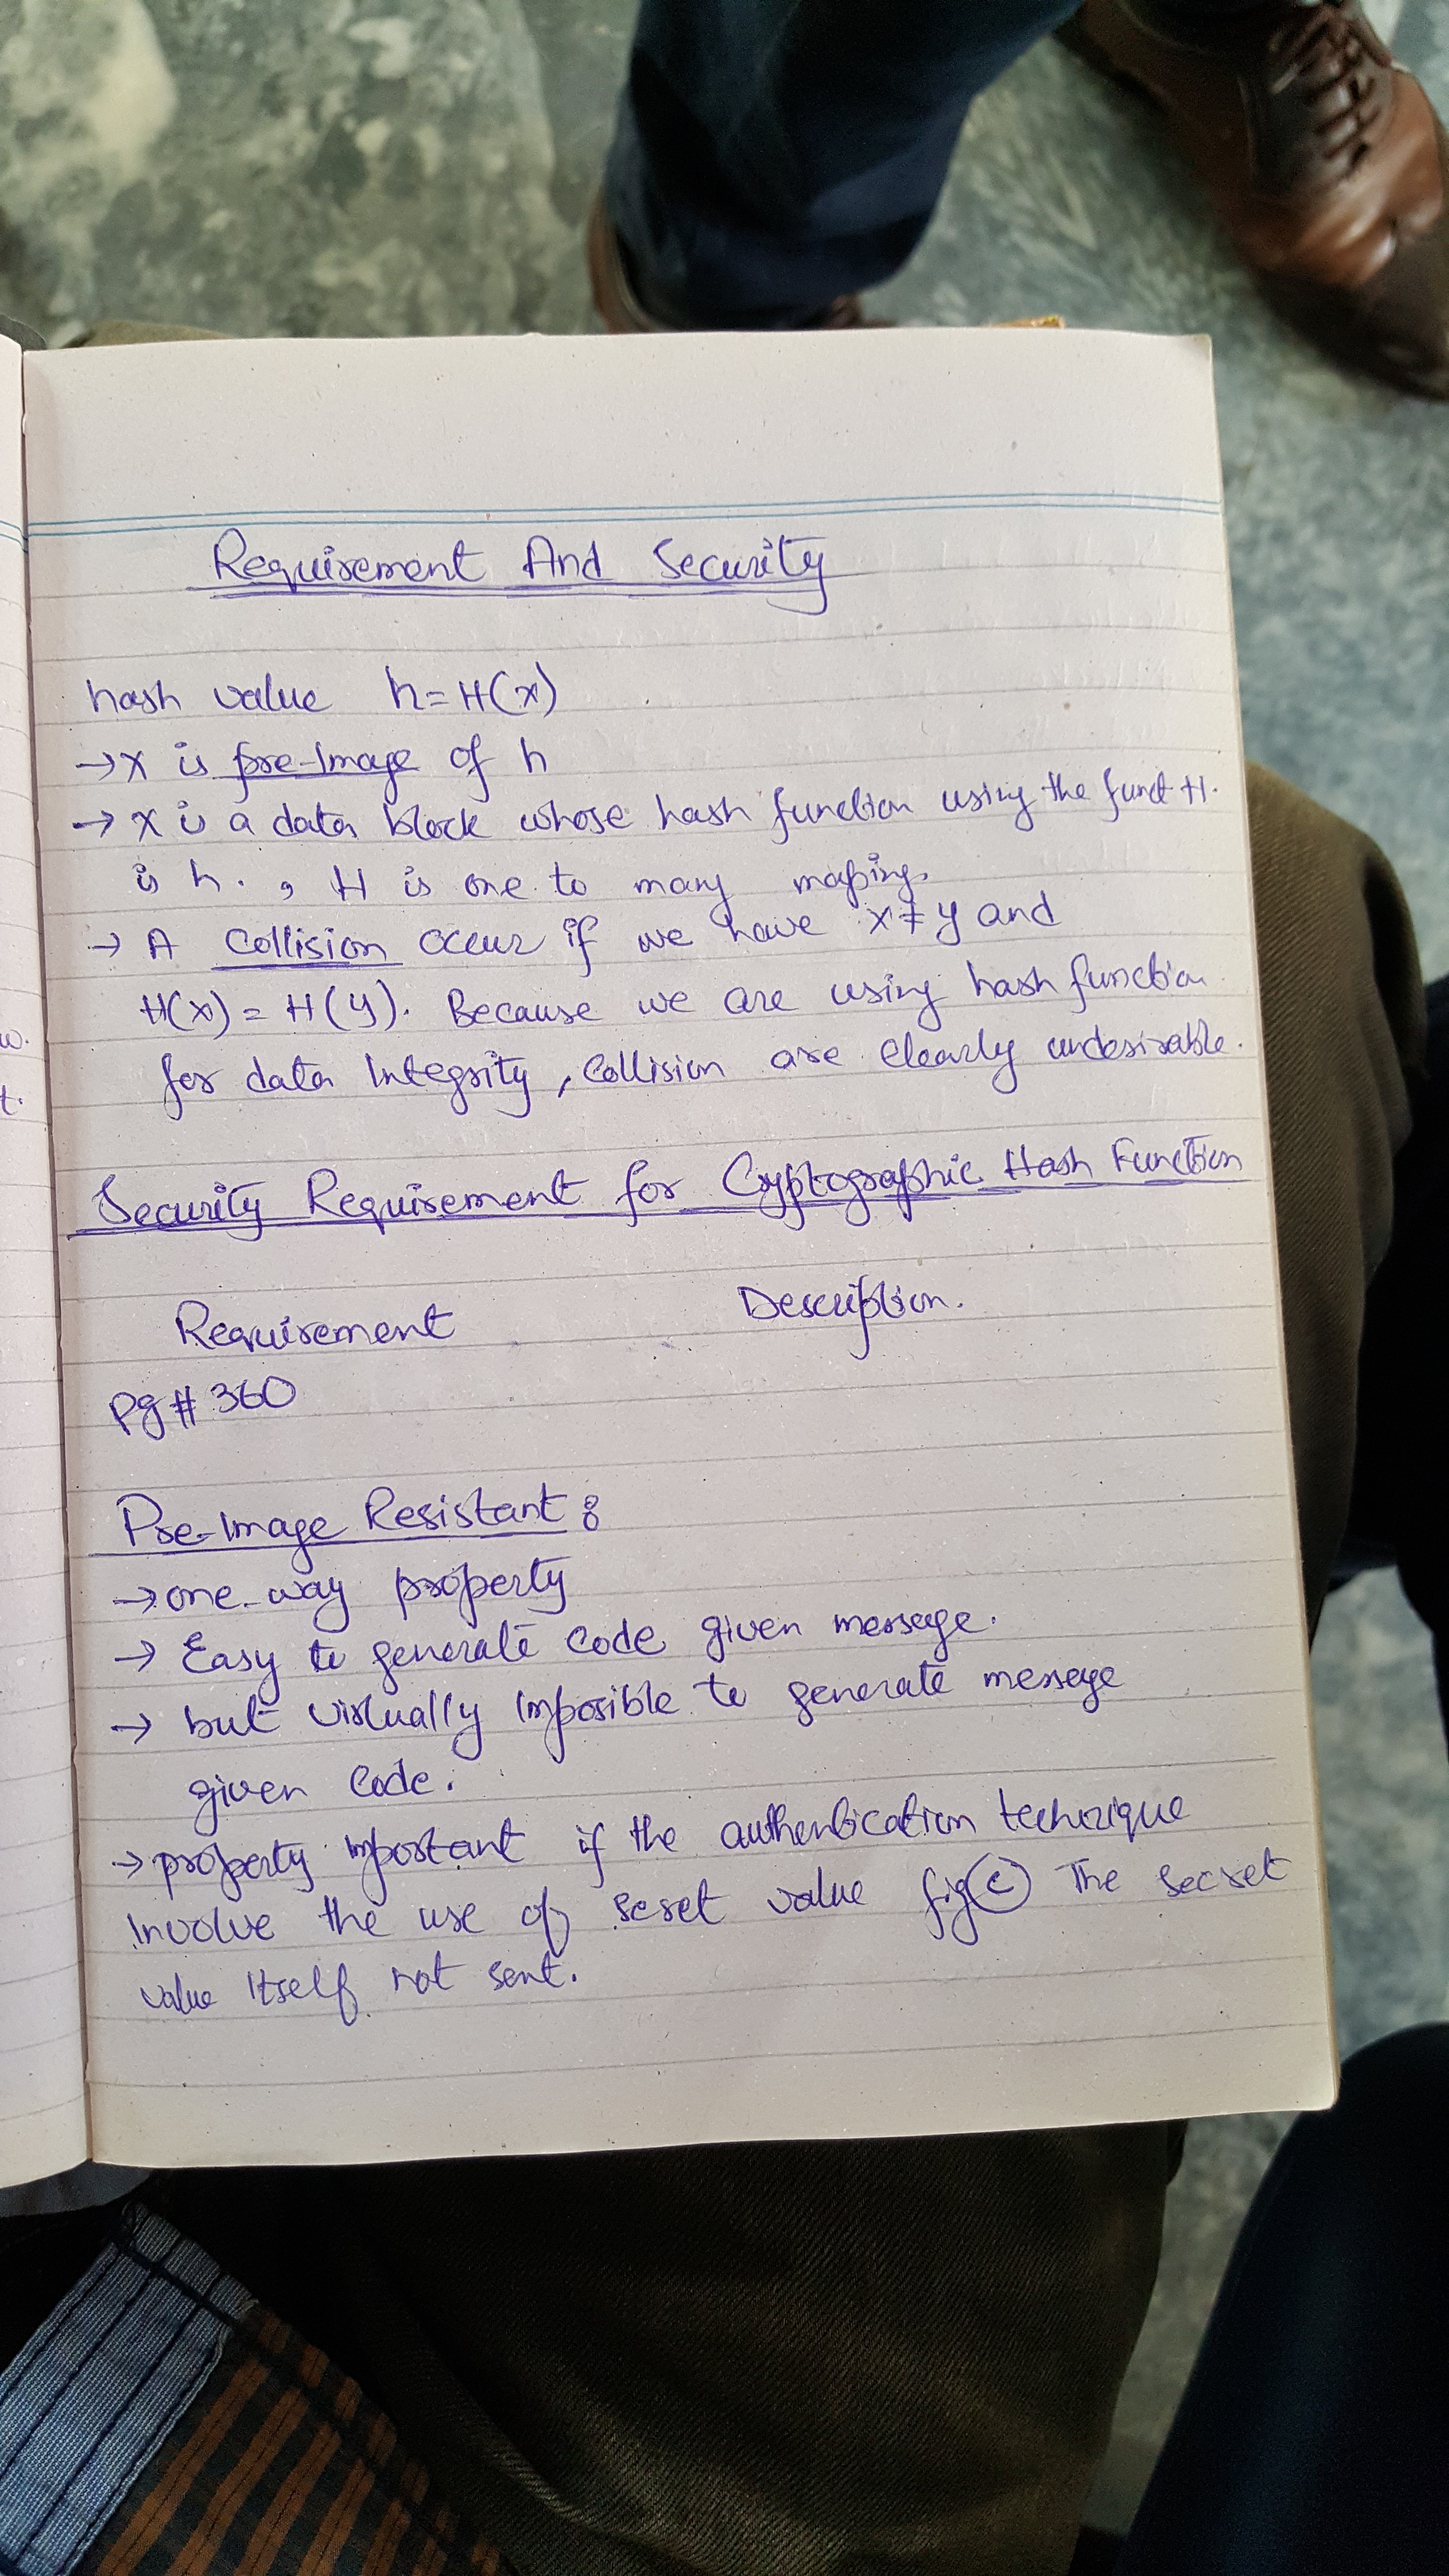 Requirement And Security
hash value h=H(x)
→ x is pre-Image of h
→ x is a data block whose hash function using the funct H.
is h. , H is one to many maping.
→ A Collision occur if we have x ≠ y and
H(x) = H(y). Because we are using hash function
for data Integrity, Collision are clearly undesirable.
Security Requirement for Cryptographic Hash Function
Requirement Description.
Pg# 360
Pre-Image Resistant:
→ one-way property
→ Easy to generate code given message.
→ but virtually Imposible to generate messege
given Code.
→ property important if the authentication technique
Involve the use of seset value fig(c) The secret
value Itself not sent.
w.
t.